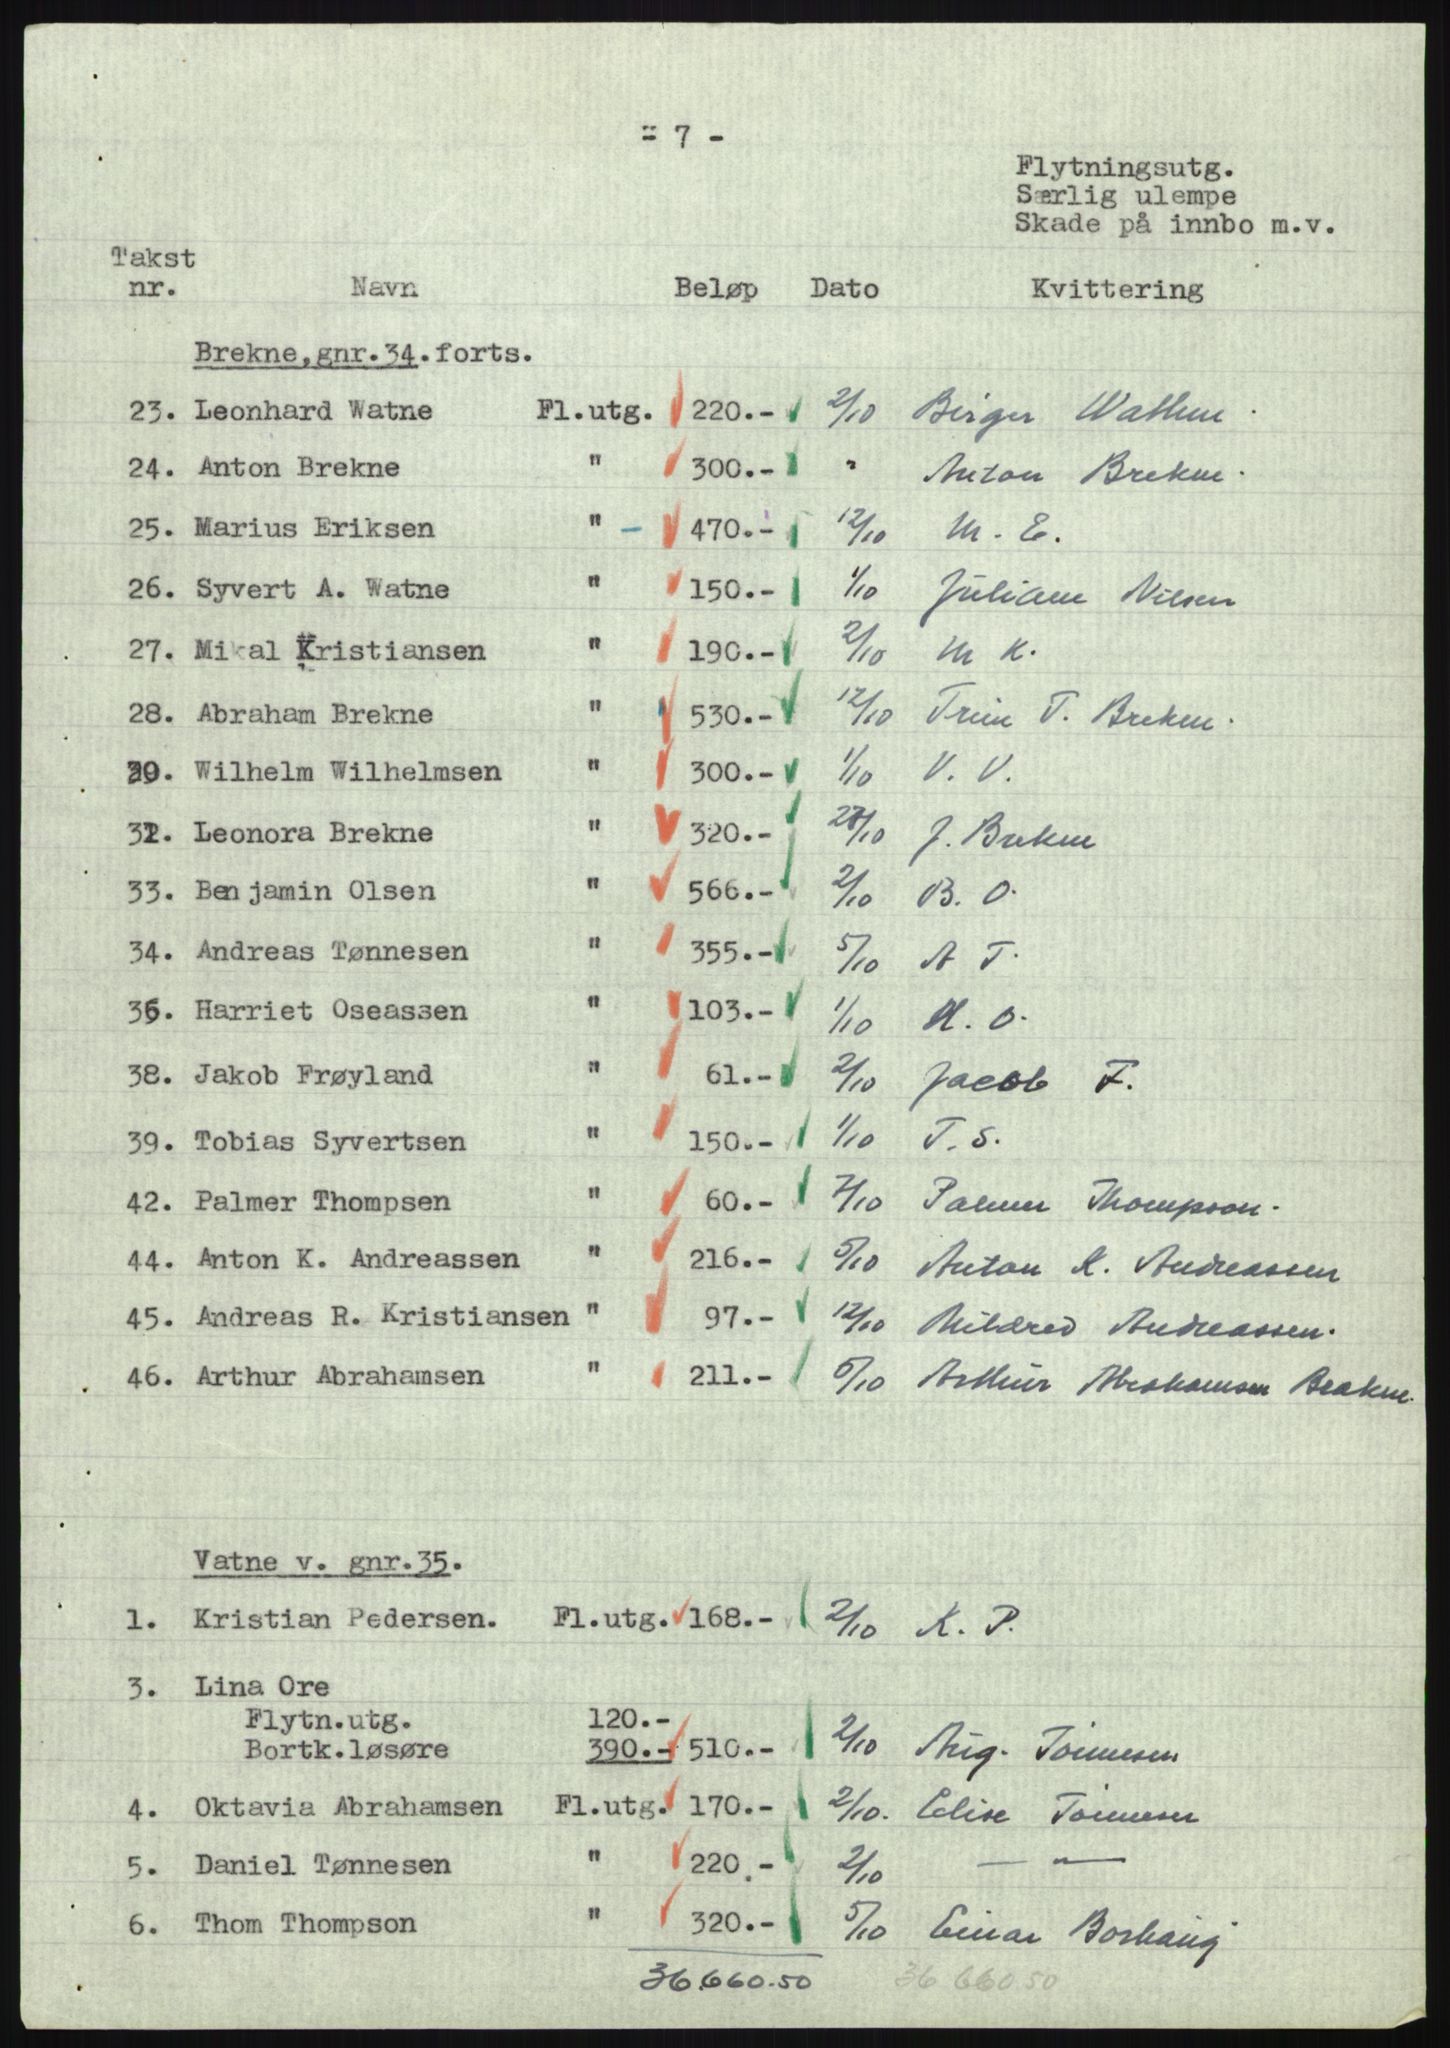 - 7 -
Flytningsutg.
Særlig ulempe
Skade på innbo m.v.
Takst
nr. Navn Beløp Dato Kvittering
Brekne, gnr.34.forts.
23. Leonhard Watne Fl.utg. 220.- 2/10 Birger Wathne
24. Anton Brekne " 300.- " Anton Brekne.
25. Marius Eriksen " - 470.- 12/10 M. E.
26. Syvert A. Watne " 150.- 1/10 Juliane Nilsen
27. Mikal Kristiansen " 190.- 2/10 M K.
28. Abraham Brekne " 530.- 12/10 T. Brekne.
Wilhelm Wilhelmsen " 300.- 1/10 V. V.
Leonora Brekne " 320.- J. Brekne
33. Benjamin Olsen " 566.- 2/10 B. O.
34. Andreas Tønnesen " 355.- 5/10 A T.
Harriet Oseassen " 103.- 1/10 H. O.
38. Jakob Frøyland " 61.- 2/10 Jacob F.
39. Tobias Syvertsen " 150.- 1/10 T. S.
42. Palmer Thompsen " 60.- Palmer Thompson.
44. Anton K. Andreassen " 216.- 5/10 Anton K. Andreassen
45. Andreas R. Kristiansen " 97.- 12/10 Mildred Andreassen.
46. Arthur Abrahamsen " 211.- 5/10 Arthur Abrahamsen Brekne.
Vatne v. gnr.35.
1. Kristian Pedersen. Fl.utg. 168.- 2/10 K. P.
3. Lina Ore
Flytn.utg. 120.-
Bortk.løsøre 390.- 510.- 2/10 Aug. Tönnesen
4. Oktavia Abrahamsen Fl.utg. 170.- 2/10. Elise Tönnesen
5. Daniel Tønnesen " 220.- 2/10 — —
6. Thom Thompson " 320.- 5/10 Einar Boshaug
36.660.50 36 660 50